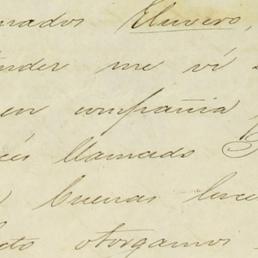 mados Eluvero,
nder me vi
en compañia
cés llamado
Cuenas
cto otorgamos